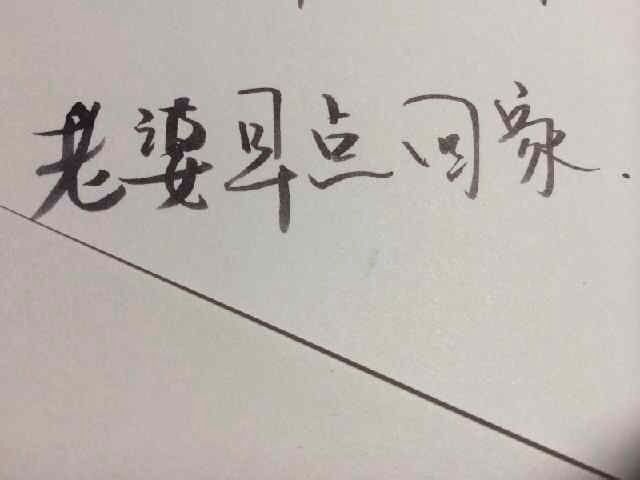 老婆早点回家.